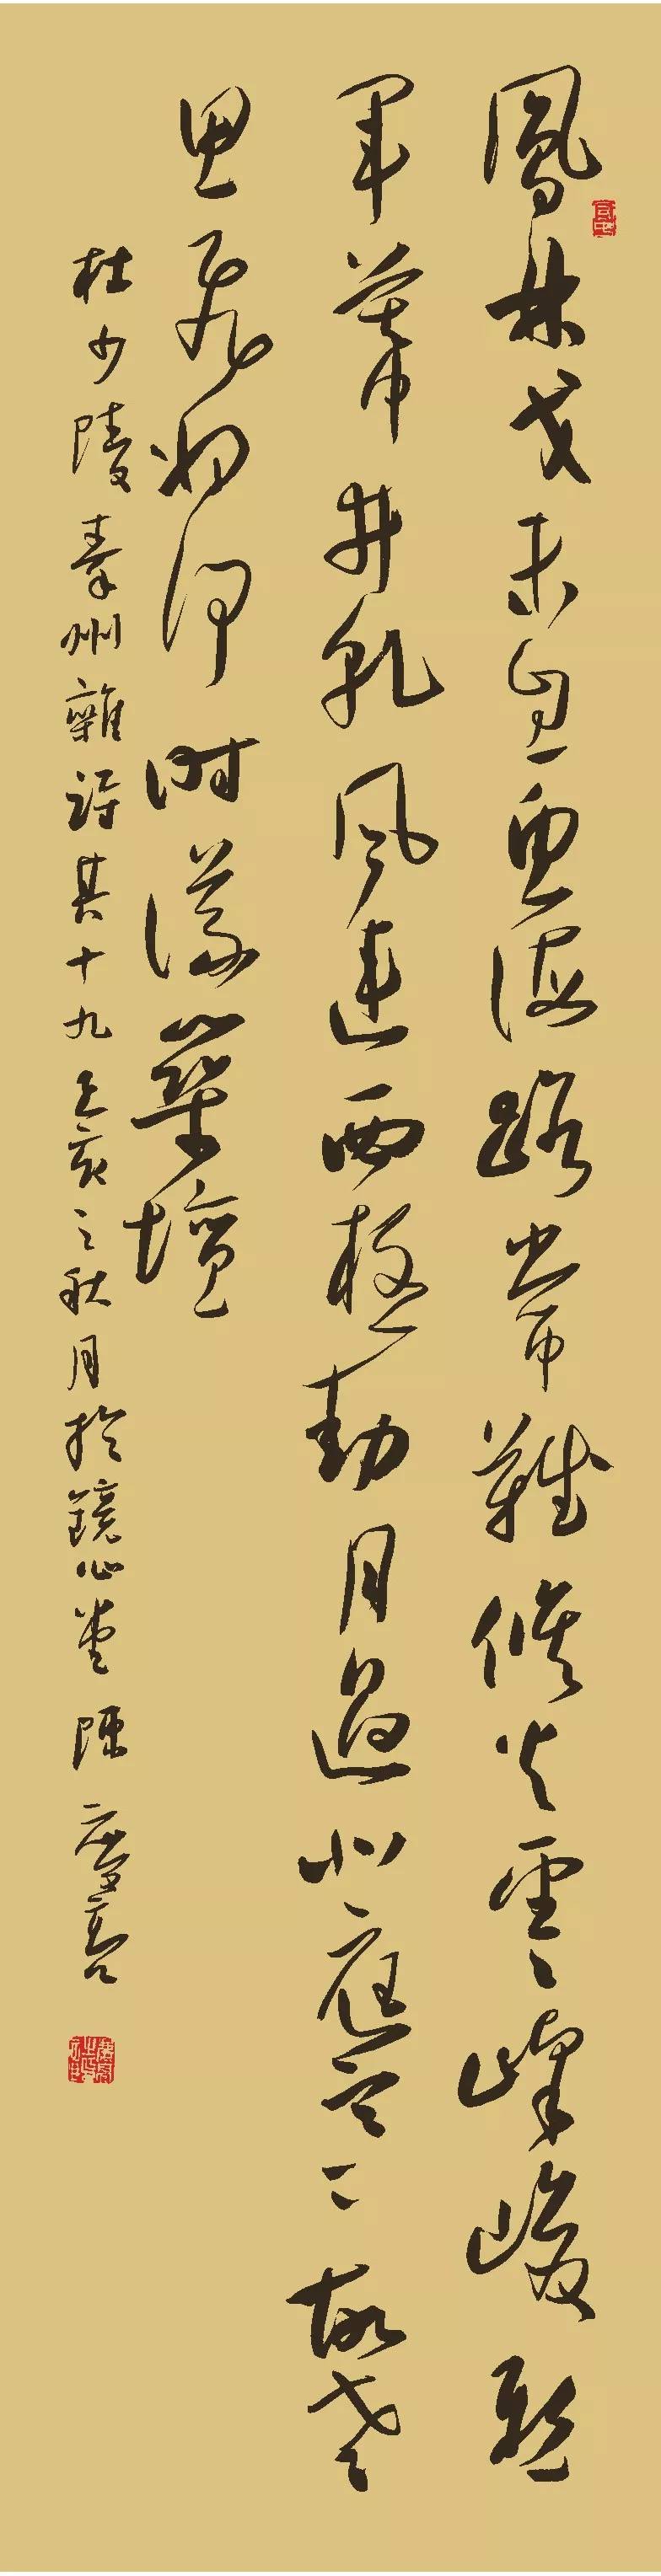 鳳林戈未息魚海路常難候火雲峰峻懸
軍幕井乾風連西極動月過北庭寒故老
思飛將何時議築壇
杜少陵秦州雜詩其十九己亥之秋月於鏡心堂陳慶